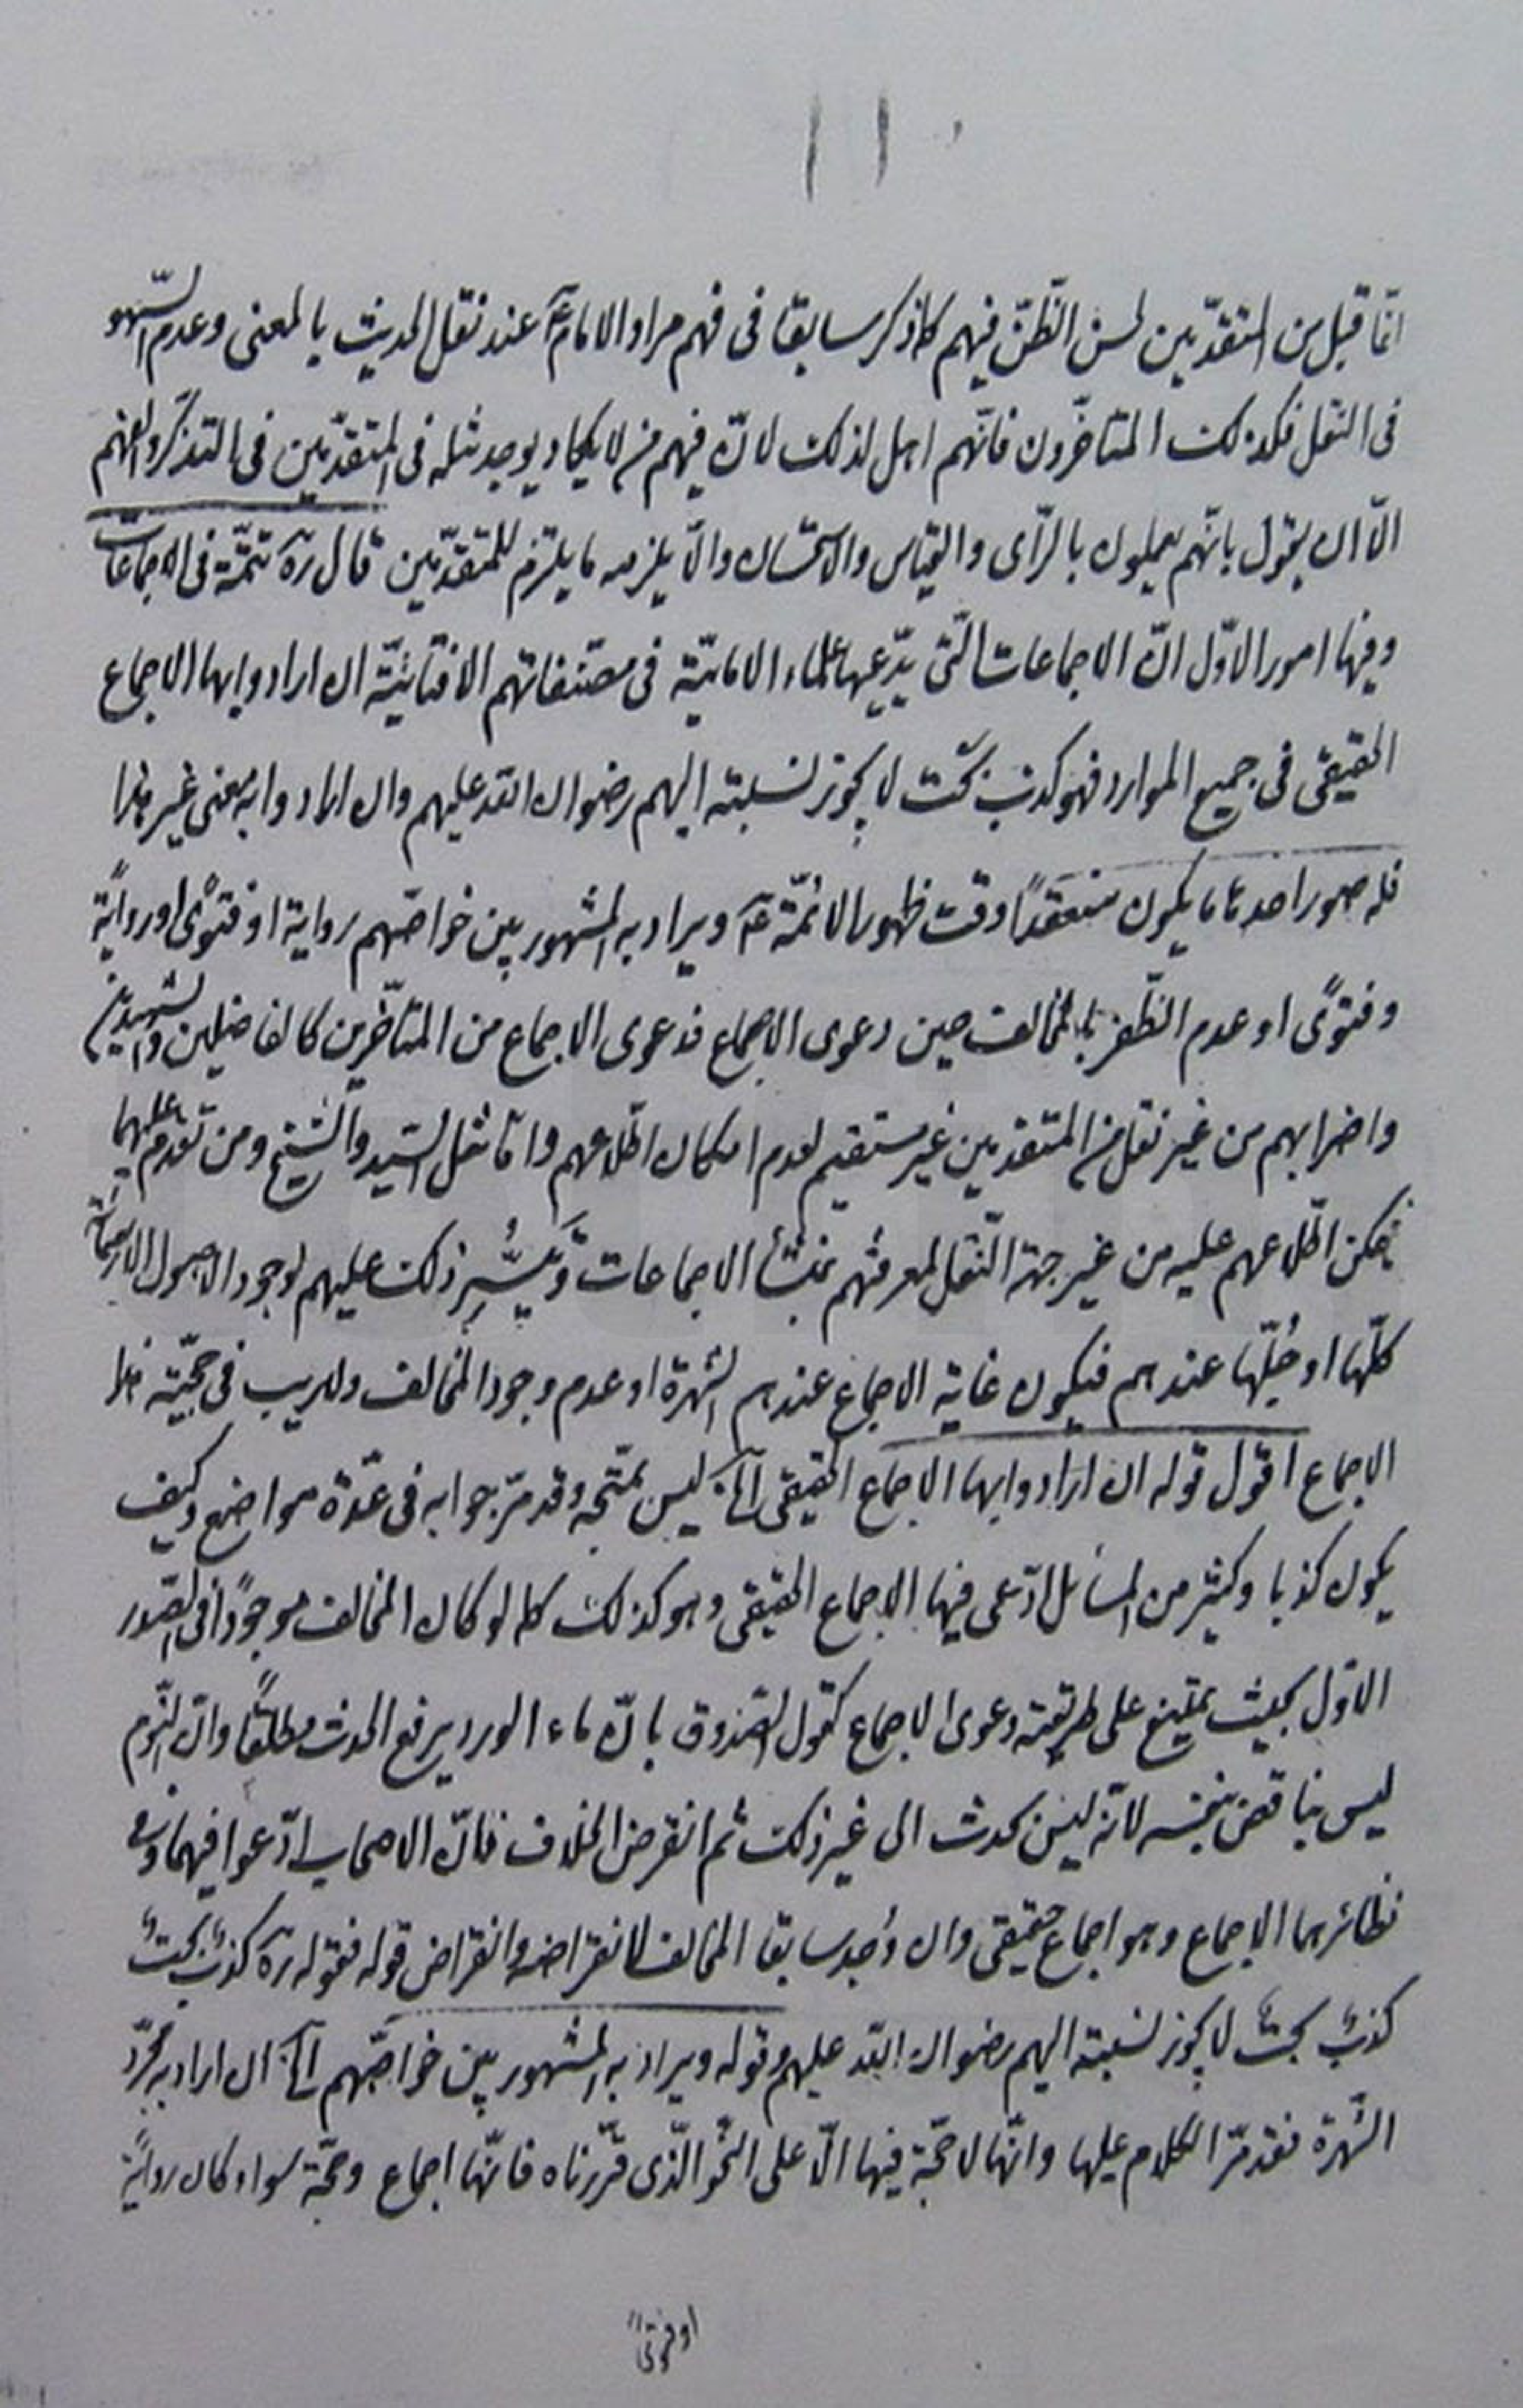 ١١
انّما قبل من المتقدّمين لحسن الظّنّ فيهم كما ذكر سابقا فى فهم مراد الامام ع عند نقل الحديث بالمعنى وعدم السّهو
فى النقل فكذلك المتاخّرون فانّهم اهل لذلك لانّ فيهم من لا يكاد يوجد مثله فى المتقدّمين فى التذكّر والفهم
الّا ان يقول بانّهم يعملون بالرّاى والقياس والاستحسان والّا يلزمه ما يلتزم للمتقدّمين قال ره تتمّة فى الاجماعات
وفيها امور الاوّل انّ الاجماعات الّتى يدّعيها علماء الاماميّة فى مصنّفاتهم الافتائيّة ان ارادوا بها الاجماع
الحقيقى فى جميع الموارد فهو كذب بحت لا يجوز نسبته اليهم رضوان الله عليهم وان ارادوا به معنى غير هذا
فله صور احدها ما يكون منعقدًا وقت ظهور الائمّة ع ويراد به المشهور بين خواصّهم رواية او فتوًى او روايةً
وفتوًى او عدم الظّفر بالمخالف حين دعوى الاجماع فدعوى الاجماع من المتاخّرين كالفاضلين والشهيدين
واضرابهم من غير نقل من المتقدمين غير مستقيم لعدم امكان اطّلاعهم وامّا مثل السّيد والشّيخ ومن تقدم عليهما
فيمكن اطّلاعهم عليه من غير جهة النّقل لمعرفتهم بمنشأ الاجماعات وتَيَسُّرِ ذلك عليهم لوجود الاصول الاربعمائة
كلّها او جُلّها عندهم فيكون غاية الاجماع عندهم الشهرة او عدم وجود المخالف ولا ريب فى حجّيّة هذا
الاجماع اقول قوله ان ارادوا بها الاجماع الحقيقى الخ ليس بمتّجه وقد مرّ جوابه فى عدّة مواضع وكيف
يكون كذبا وكثير من المسائل ادّعى فيها الاجماع الحقيقى وهو كذلك كما لو كان المخالف موجودًا فى الصّدر
الاوّل بحيث يمتنع على طريقته دعوى الاجماع كقول الصّدوق بانّ ماء الورد يرفع الحدث مطلقًا وانّ النّوم
ليس بناقض بنفسه لانّه ليس بحدث الى غير ذلك ثم انقرض الخلاف فانّ الاصحاب ادّعوا فيهما وفى
نظائرهما الاجماع وهو اجماع حقيقى وان وُجد سابقا المخالف لانقراضه وانقراض قوله فقوله ره كذبٌ بحتٌ
كذبٌ بحتٌ لا يجوز نسبته اليهم رضوان الله عليهم وقوله ويراد به المشهور بين خواصّهم الخ ان اراد به مجرّد
الشّهرة فقد مرّ الكلام عليها وانّها لا حجّة فيها الّا على النّحو الّذى قرّرناه فانّها اجماع وحجّة سواء كان روايةً
او فتوًى